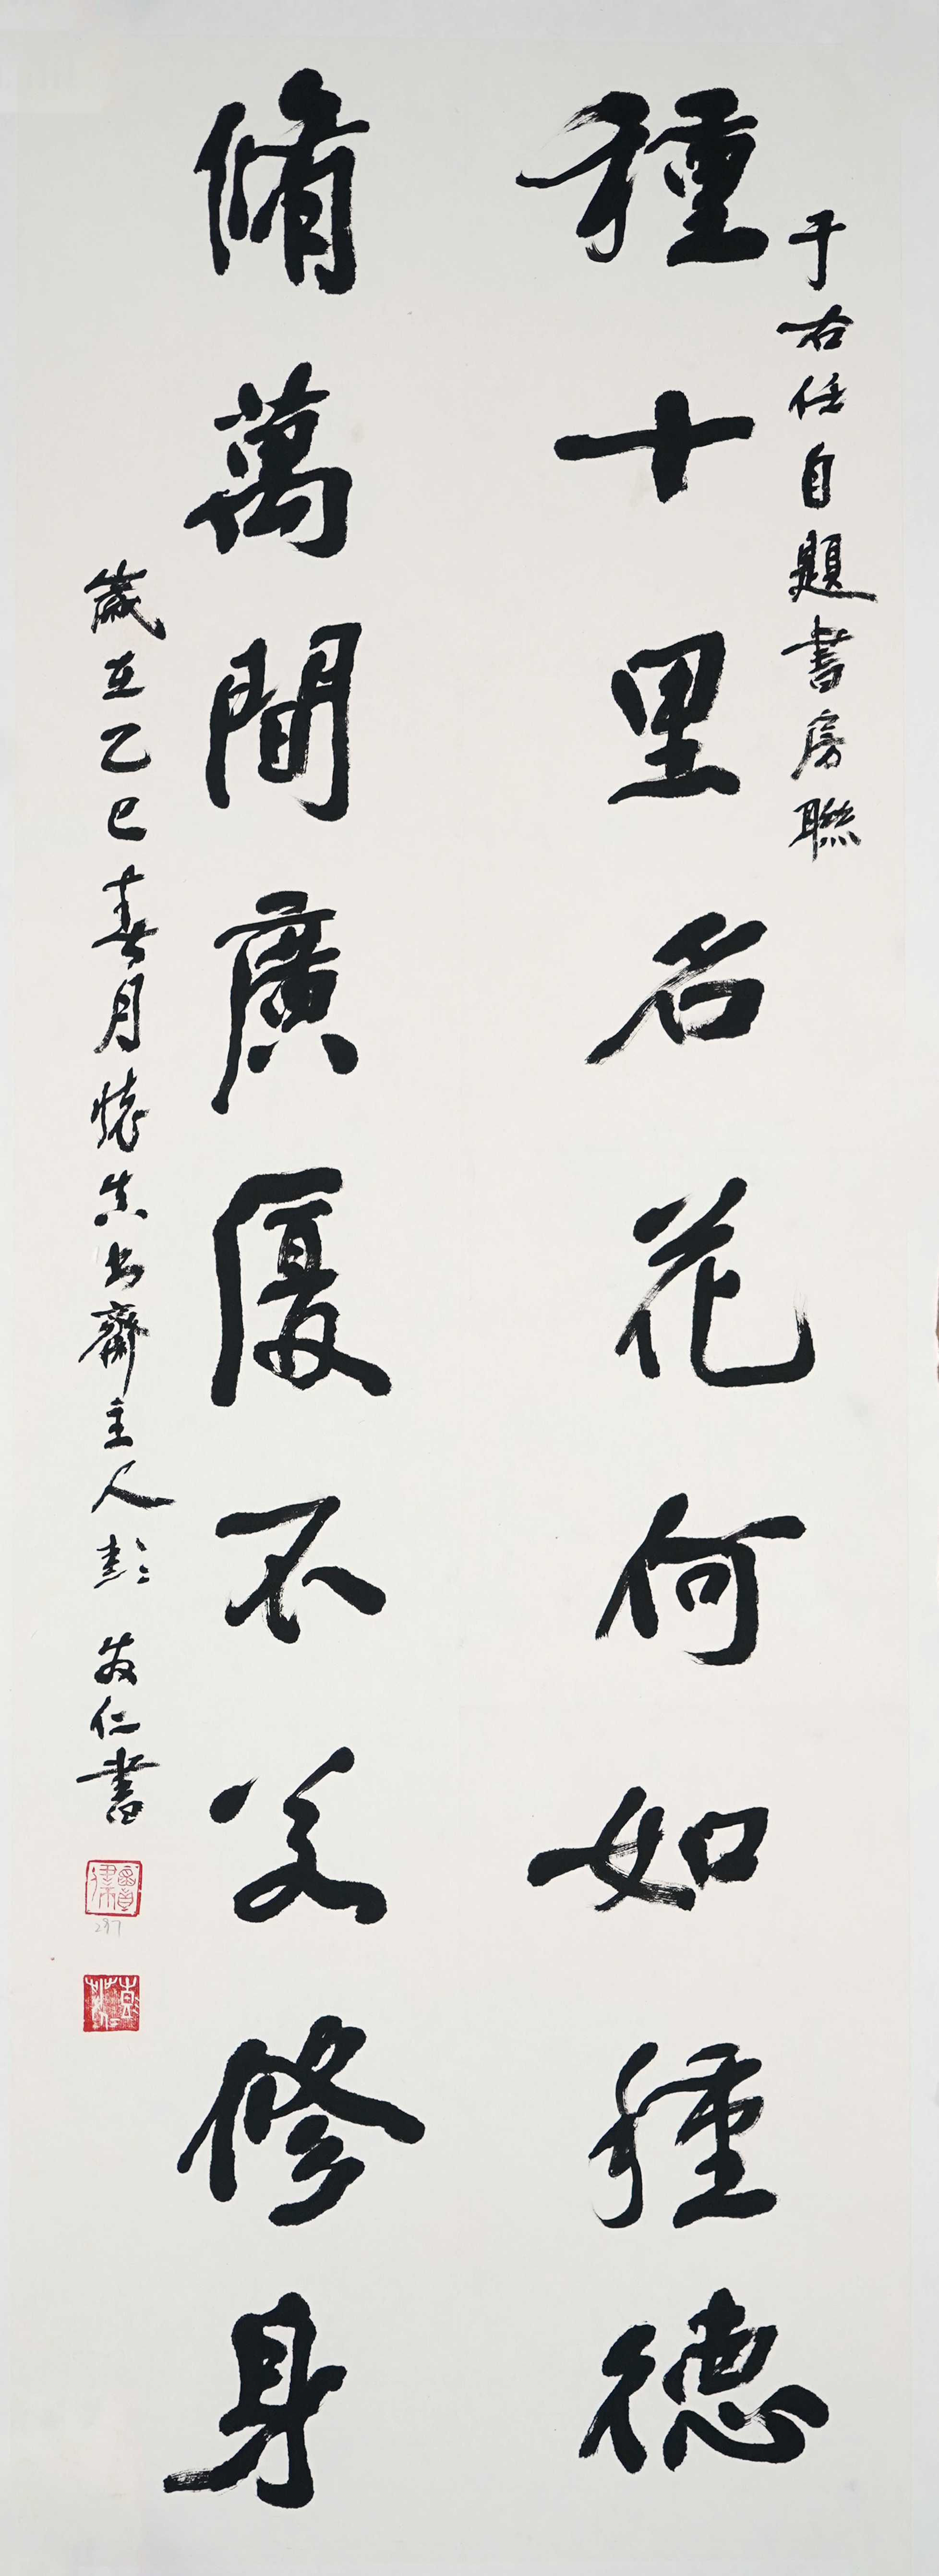 于右任自題書房聯
種十里名花何如種德
脩萬間廣厦不若修身
歲在乙巳春月懷真书齋主人彭仁書
287